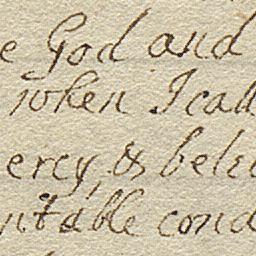 e God and
when I call
ercy, & belei
ntable cond